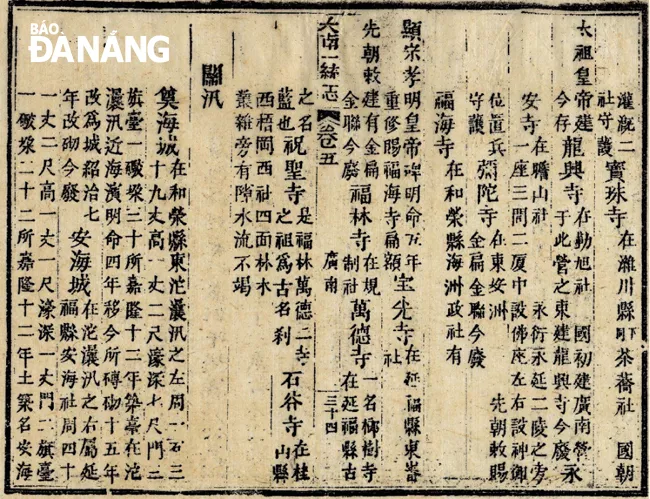 BÁO
ĐÀ NẴNG
灌溉二
社守護 寶珠寺 在濰川縣 茶蕎社 國朝
太祖皇帝建
今存 龍興寺 在勤旭社 國初建廣南營永
于此營之東建龍興寺今廢
安寺 在贍山社 永衍永延二陵之旁
一座三間二厦中設佛座左右設神御
位置兵
守護 彌陀寺 在東按洲 先朝敕賜
金扁金聯今廢
福海寺 在和榮縣海洲政社有
顯宗孝明皇帝碑明命五年
重修賜福海寺扁額 宝光寺 在延福縣東 社
先朝敕建有金扁
金聯今廢 福林寺 在規
制社 萬德寺 一名椰樹寺
在延福縣古
大南一統志 卷五 廣南 三十四
之名
藍也 祝聖寺 是福林萬德二寺
之祖爲古名刹 石谷寺 在桂
山縣
西梧岡西社四面林水
叢雜旁有障水流不竭
關汛
奠海城 在和榮縣東沱㶞汛之左周一百三
十九丈高一丈二尺濠深七尺門三
旗臺一礮㙡三十所嘉隆十二年築臺在沱
㶞汛近海濱明命四年移今所磚砌十五年
改爲城紹治七
年改砌今廢 安海城 在沱㶞汛之右屬延
福縣安海社周四十
一丈二尺高一丈一尺濠深一丈門二旗臺
一礮㙡二十二所嘉隆十二年土築名安海